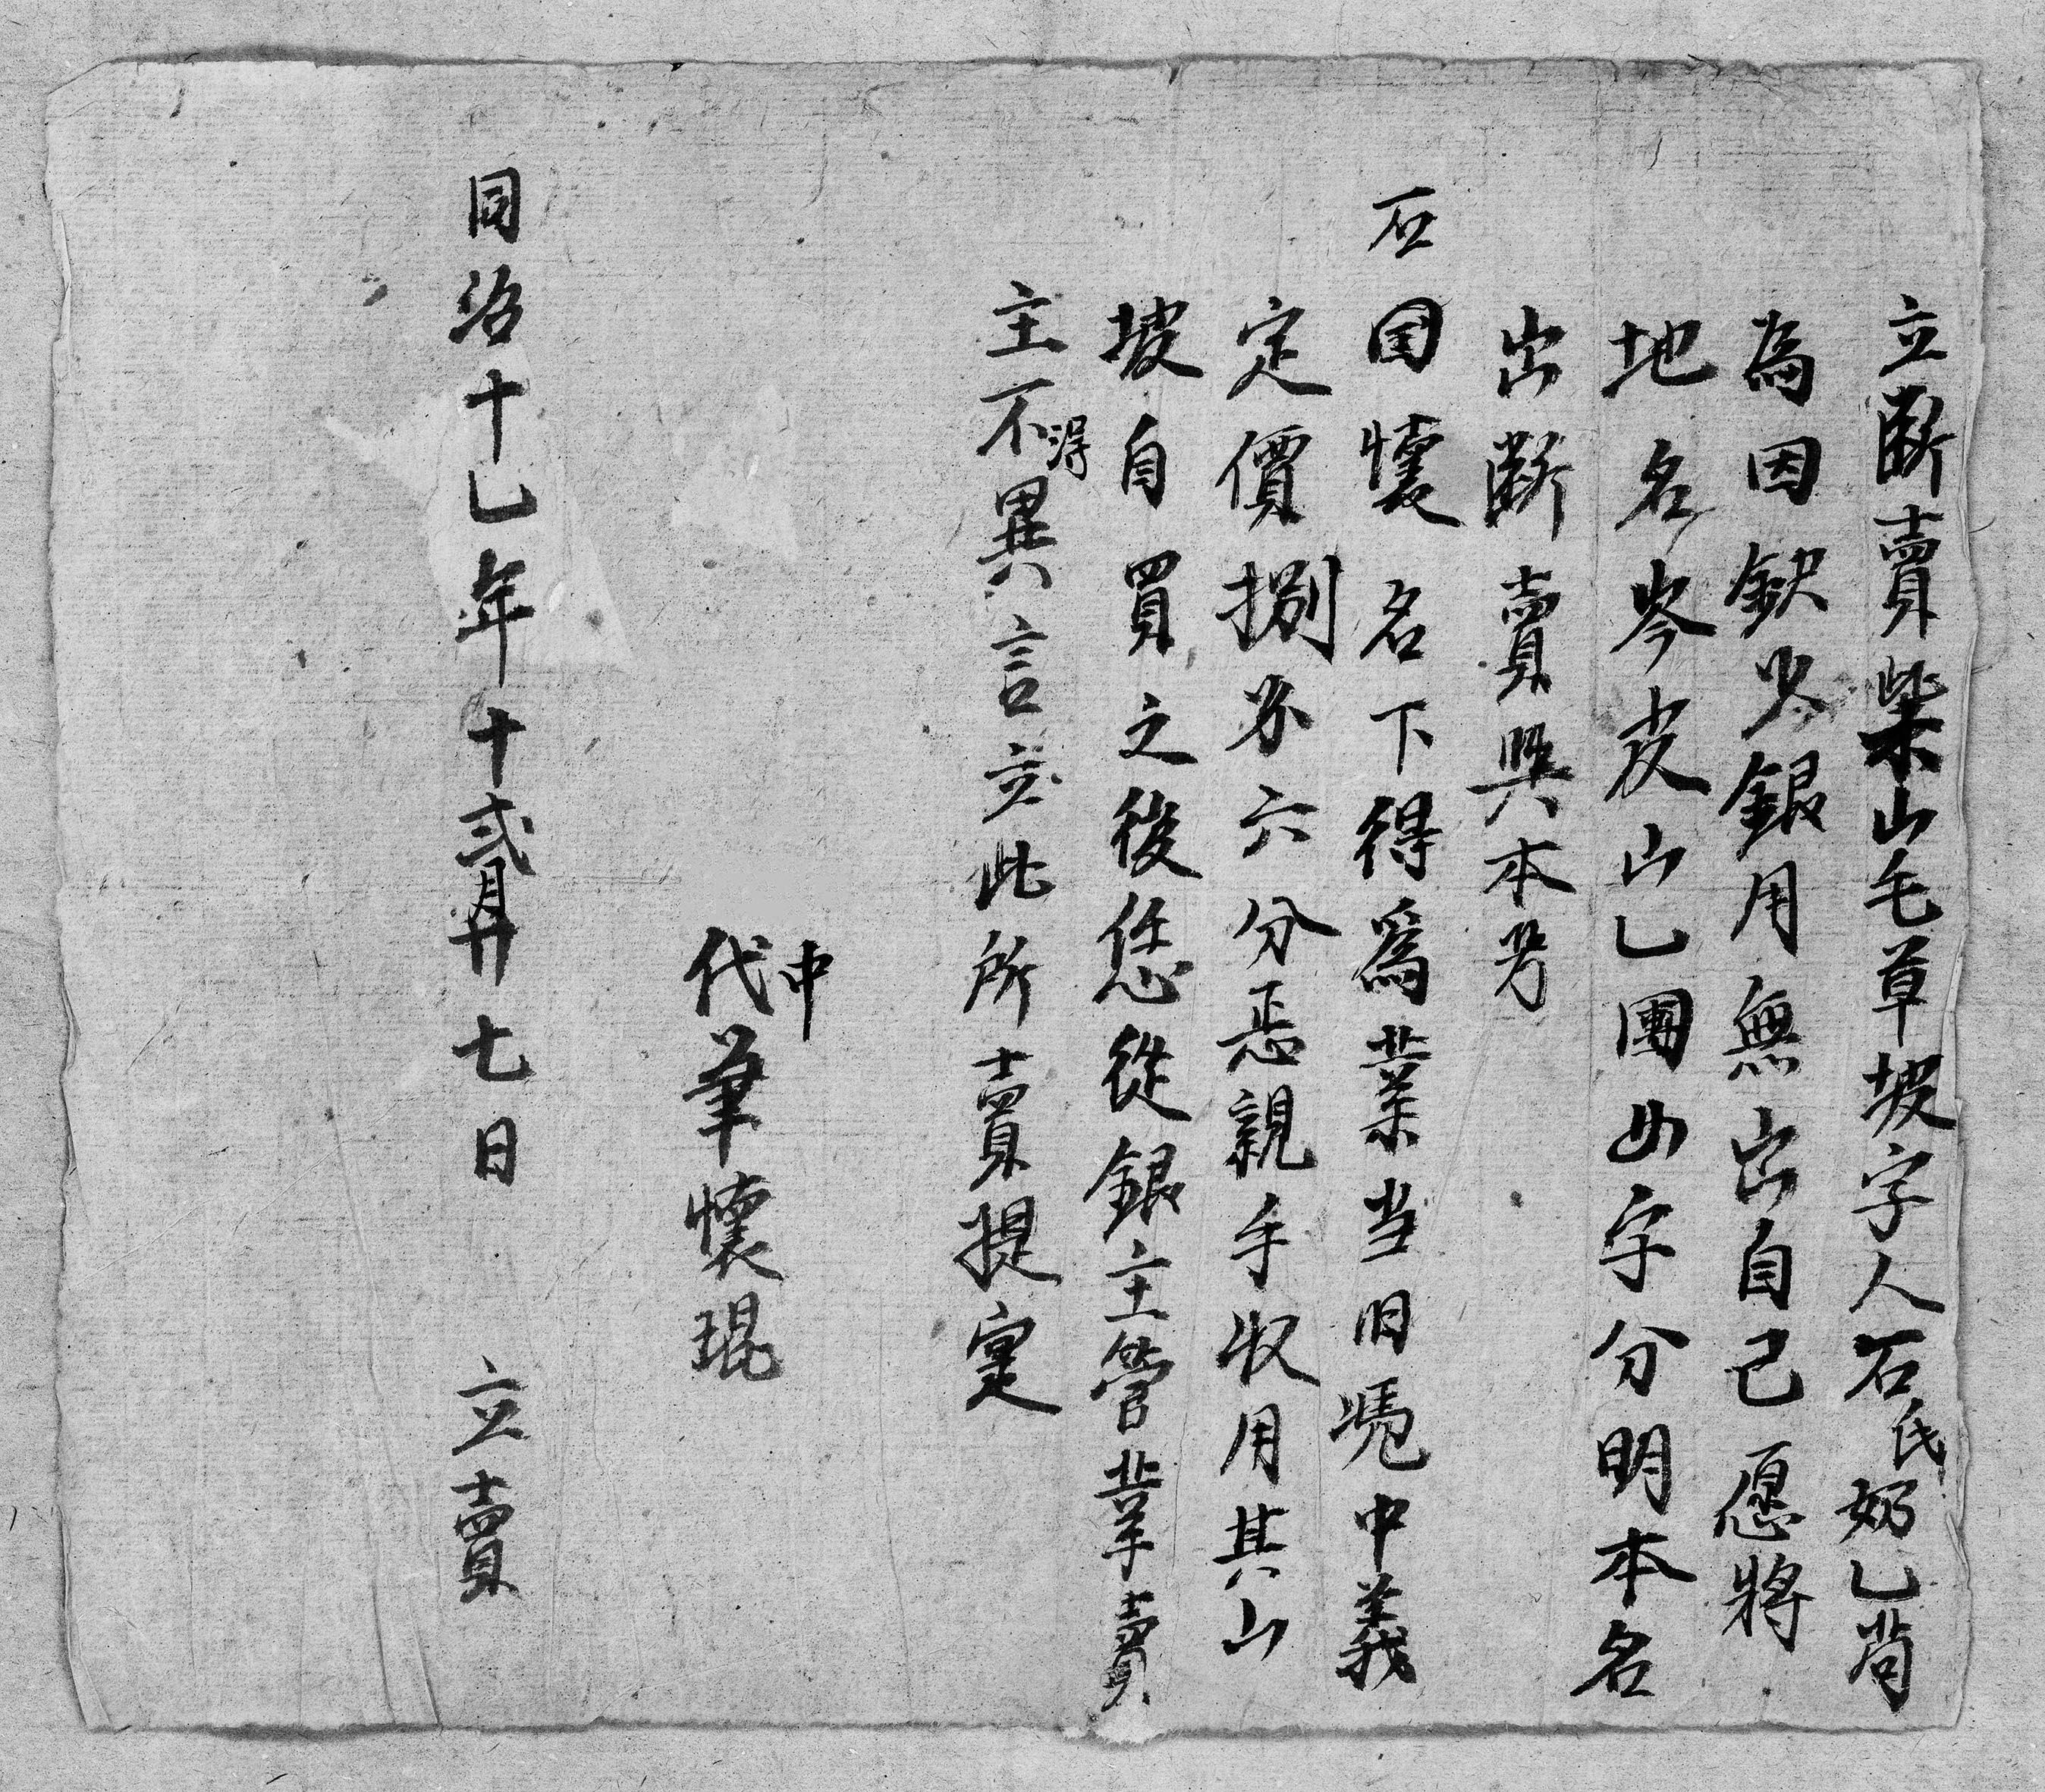 立斷賣柴山毛草坡字人石氏奶乚苟
為因缺少銀用無出自己愿將
地名岑皮山乚團此字分明本名
出斷賣與本
石国懷名下得為業当日憑中義
定價捌分六分恶親手收用其山
坡自買之後恁從銀主管業賣
主不得異言立此所賣提寔
中
代筆懷琨
同治十乚年十弍月廿七日 立賣